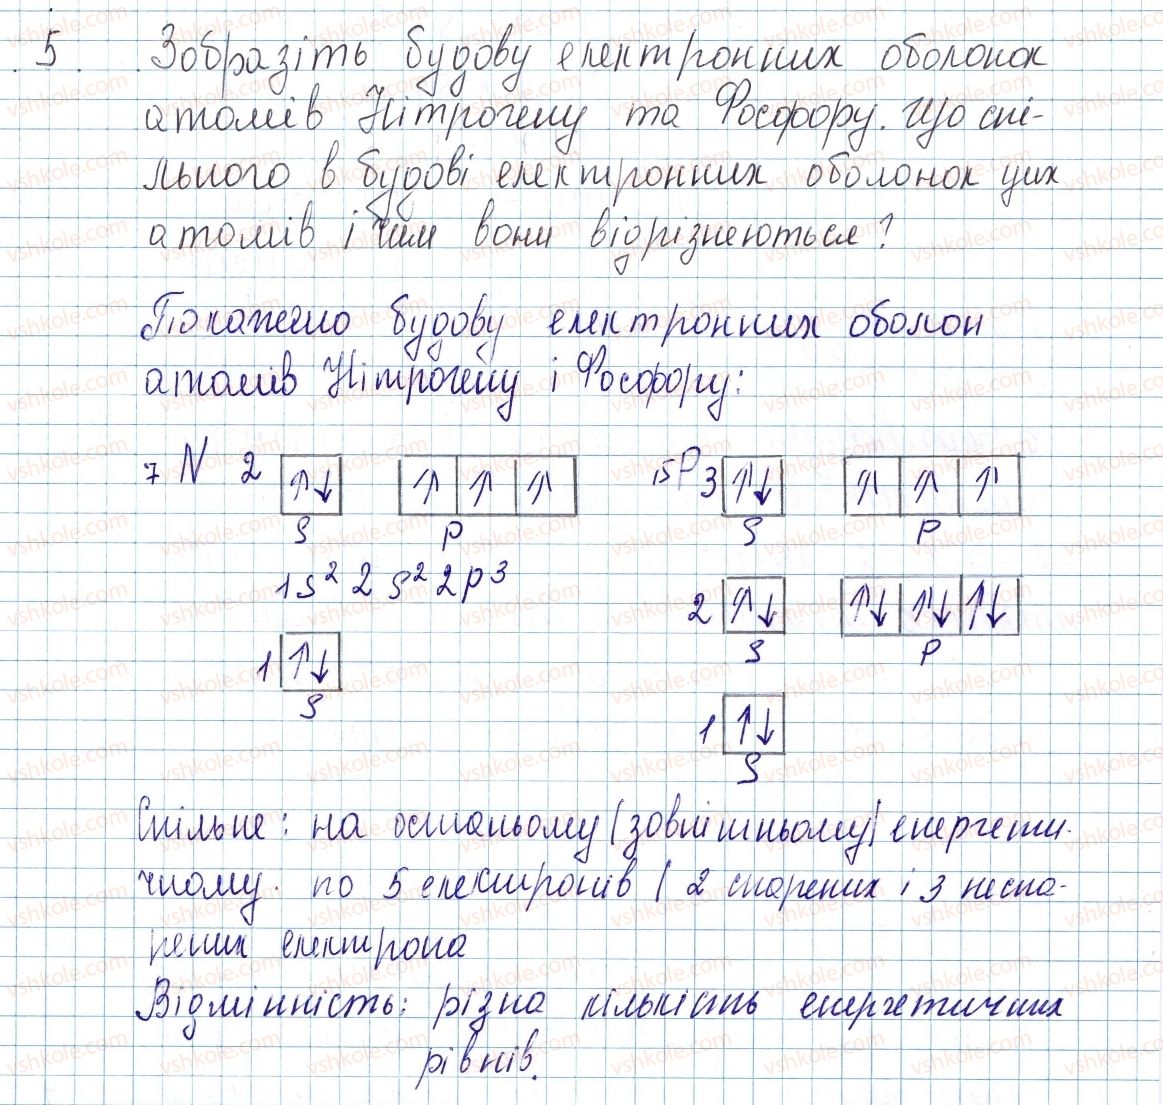 5. Зобразіть будову електронних оболонок
атомів Нітрогену та Фосфору. Що спі-
льного в будові електронних оболонок цих
атомів і чим вони відрізняються?
Покажемо будову електронних оболон
атомів Нітрогену і Фосфору:
7 N 2 ↑↓ ↑ ↑ ↑ 15 P 3 ↑↓ ↑ ↑ ↑
S P S P
1s² 2s² 2p³
2 ↑↓ ↑↓ ↑↓ ↑↓
1 ↑↓ S P
S
1 ↑↓
S
Спільне: на останьому (зовнішньому) енергети-
чному. по 5 електронів ( 2 спарених і 3 неспа-
рених електрона
Відмінність: різна кількість енергетичних
рівнів.